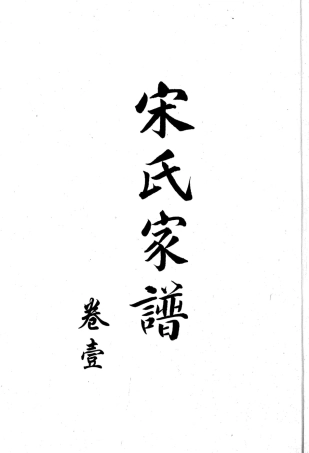 宋氏家譜
卷壹